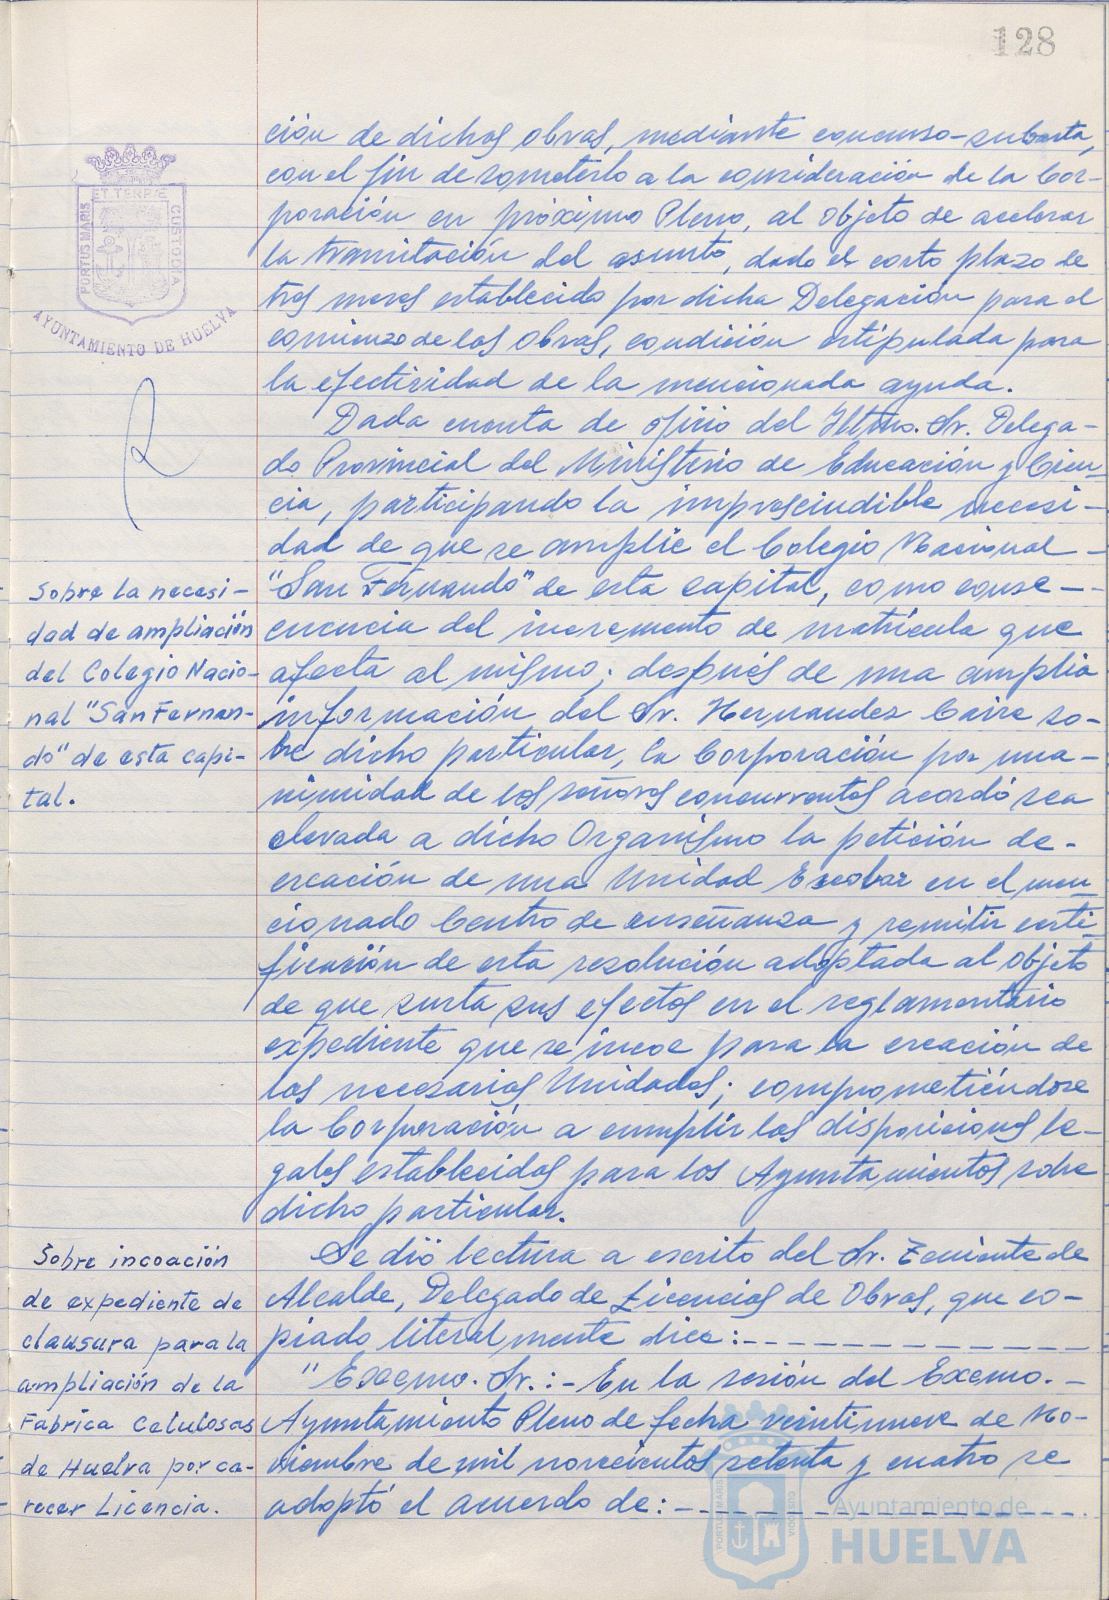 128
ción de dichas obras, mediante concurso-subasta,
con el fin de someterlo a la consideración de la Cor-
poración en próximo Pleno, al objeto de acelerar
la tramitación del asunto, dado el corto plazo de
tres meses establecido por dicha Delegación para el
comienzo de las obras, condición estipulada para
la efectividad de la mencionada ayuda.
ET TERRÆ
PORTUS MARIS
CUSTODIA
AYUNTAMIENTO DE HUELVA
Dada cuenta de oficio del Iltmo. Sr. Delega-
do Provincial del Ministerio de Educación y Cien-
cia, participando la imprescindible necesi-
dad de que se amplie el Colegio Nacional -
"San Fernando" de esta capital, como conse--
cuencia del incremento de matrícula que
afecta al mismo; después de una amplia
información del Sr. Hernandez Caire so-
bre dicho particular, la Corporación por una-
nimidad de los señores concurrentes acordó sea
elevada a dicho Organismo la petición de-
creación de una Unidad Escolar en el men-
cionado Centro de enseñanza y remitir certi-
ficación de esta resolución adoptada al objeto
de que surta sus efectos en el reglamentario
expediente que se incoe para la creación de
las necesarias Unidades; comprometiéndose
la Corporación a cumplir las disposiciones le-
gales establecidas para los Ayuntamientos sobre
dicho particular.
Sobre la necesi-
dad de ampliación
del Colegio Nacio-
nal "San Fernan-
do" de esta capi-
tal.
Se dió lectura a escrito del Sr. Teniente de
Alcalde, Delegado de Licencias de Obras, que co-
piado literalmente dice:- - - - - - - - - - - -
"Excmo. Sr.:- En la sesión del Excmo. -
Ayuntamiento Pleno de fecha veintinueve de No-
viembre de mil novecientos setenta y cuatro se
adoptó el acuerdo de:- - - - - - - - - - - - - -
Sobre incoación
de expediente de
clausura para la
ampliación de la
Fabrica Celulosas
de Huelva por ca-
recer Licencia.
PORTUS MARIS
CUSTODIA
Ayuntamiento de
HUELVA